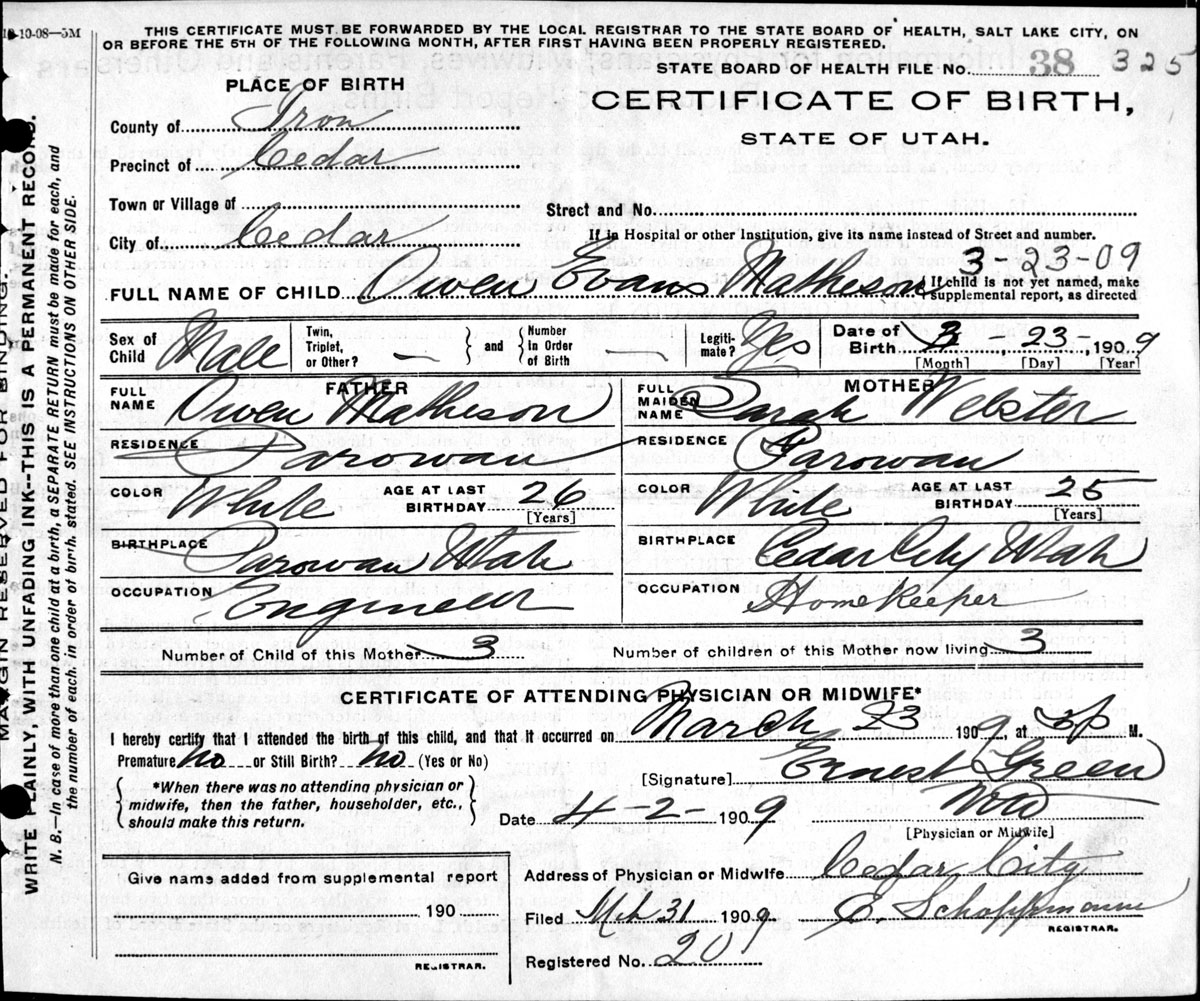 10-10-08—5M
THIS CERTIFICATE MUST BE FORWARDED BY THE LOCAL REGISTRAR TO THE STATE BOARD OF HEALTH, SALT LAKE CITY, ON
OR BEFORE THE 5TH OF THE FOLLOWING MONTH, AFTER FIRST HAVING BEEN PROPERLY REGISTERED.
STATE BOARD OF HEALTH FILE No. 38 325
PLACE OF BIRTH
CERTIFICATE OF BIRTH,
STATE OF UTAH.
County of Iron
Precinct of Cedar
Town or Village of
Street and No.
City of Cedar
If in Hospital or other Institution, give its name instead of Street and number.
3-23-09
FULL NAME OF CHILD Owen Evans Matheson
If child is not yet named, make
supplemental report, as directed
Sex of Child Male
Twin, Triplet, or Other? —
and
Number In Order of Birth —
Legitimate? Yes
Date of Birth 3 - 23 -, 1909
[Month] [Day] [Year]
FATHER
FULL NAME Owen Matheson
MOTHER
FULL MAIDEN NAME Sarah Webster
RESIDENCE Parowan
RESIDENCE Parowan
COLOR White AGE AT LAST BIRTHDAY 26 [Years]
COLOR White AGE AT LAST BIRTHDAY 25 [Years]
BIRTHPLACE Parowan Utah
BIRTHPLACE Cedar City Utah
OCCUPATION Engineer
OCCUPATION Home Keeper
Number of Child of this Mother 3
Number of children of this Mother now living 3
CERTIFICATE OF ATTENDING PHYSICIAN OR MIDWIFE*
I hereby certify that I attended the birth of this child, and that it occurred on March 23 1909, at M.
Premature? no or Still Birth? no (Yes or No)
[Signature] Ernest Green
*When there was no attending physician or
midwife, then the father, householder, etc.,
should make this return.
Date 4-2- 1909
[Physician or Midwife]
Give name added from supplemental report
190
REGISTRAR.
Address of Physician or Midwife Cedar City
Filed Mch 31 1909
REGISTRAR.
Registered No. 20
MARGIN RESERVED FOR BINDING
WRITE PLAINLY, WITH UNFADING INK---THIS IS A PERMANENT RECORD.
N. B.—In case of more than one child at a birth, a SEPARATE RETURN must be made for each, and
the number of each, in order of birth, stated. SEE INSTRUCTIONS ON OTHER SIDE.